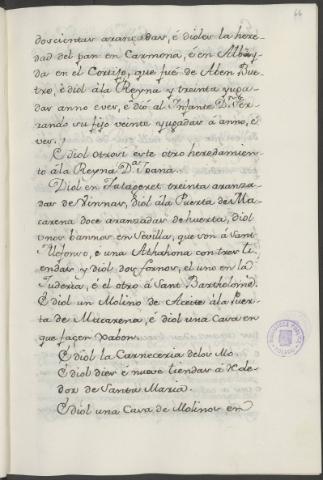 66
doscientas arançadas, é dióles la here-
dad del pan en Carmona, é en
da en el Cortijo, que fué de Aben
é diól álà Reyna treinta yuga-
das anno e vez, é dió al Infante Dⁿ Fer-
rando su fijo veinte yugadas á anno, é
vez.
É diol otrosi este otro heredamien-
to álà Reyna Dª Ioana.
Diól en treinta aranza-
das de Vinnas, diól álà Puerta de Ma-
carena doce aranzadas de huerta, diól
unos bannos en Sevilla, que son á Sant
Ilefonso, é una Athahona con tres ti-
endas y diol dos fornos, el uno en la
Juderia, é el otro á Sant Bartholomé.
É diol un Molino de Aceite álà Puer-
ta de Macarena, é diol una Casa en
que façen xabon.
É diol la Carneceria delos Mo
É diol diez é nueve tiendas á
dor de Santa Maria.
É diol una Casa de Molinos en